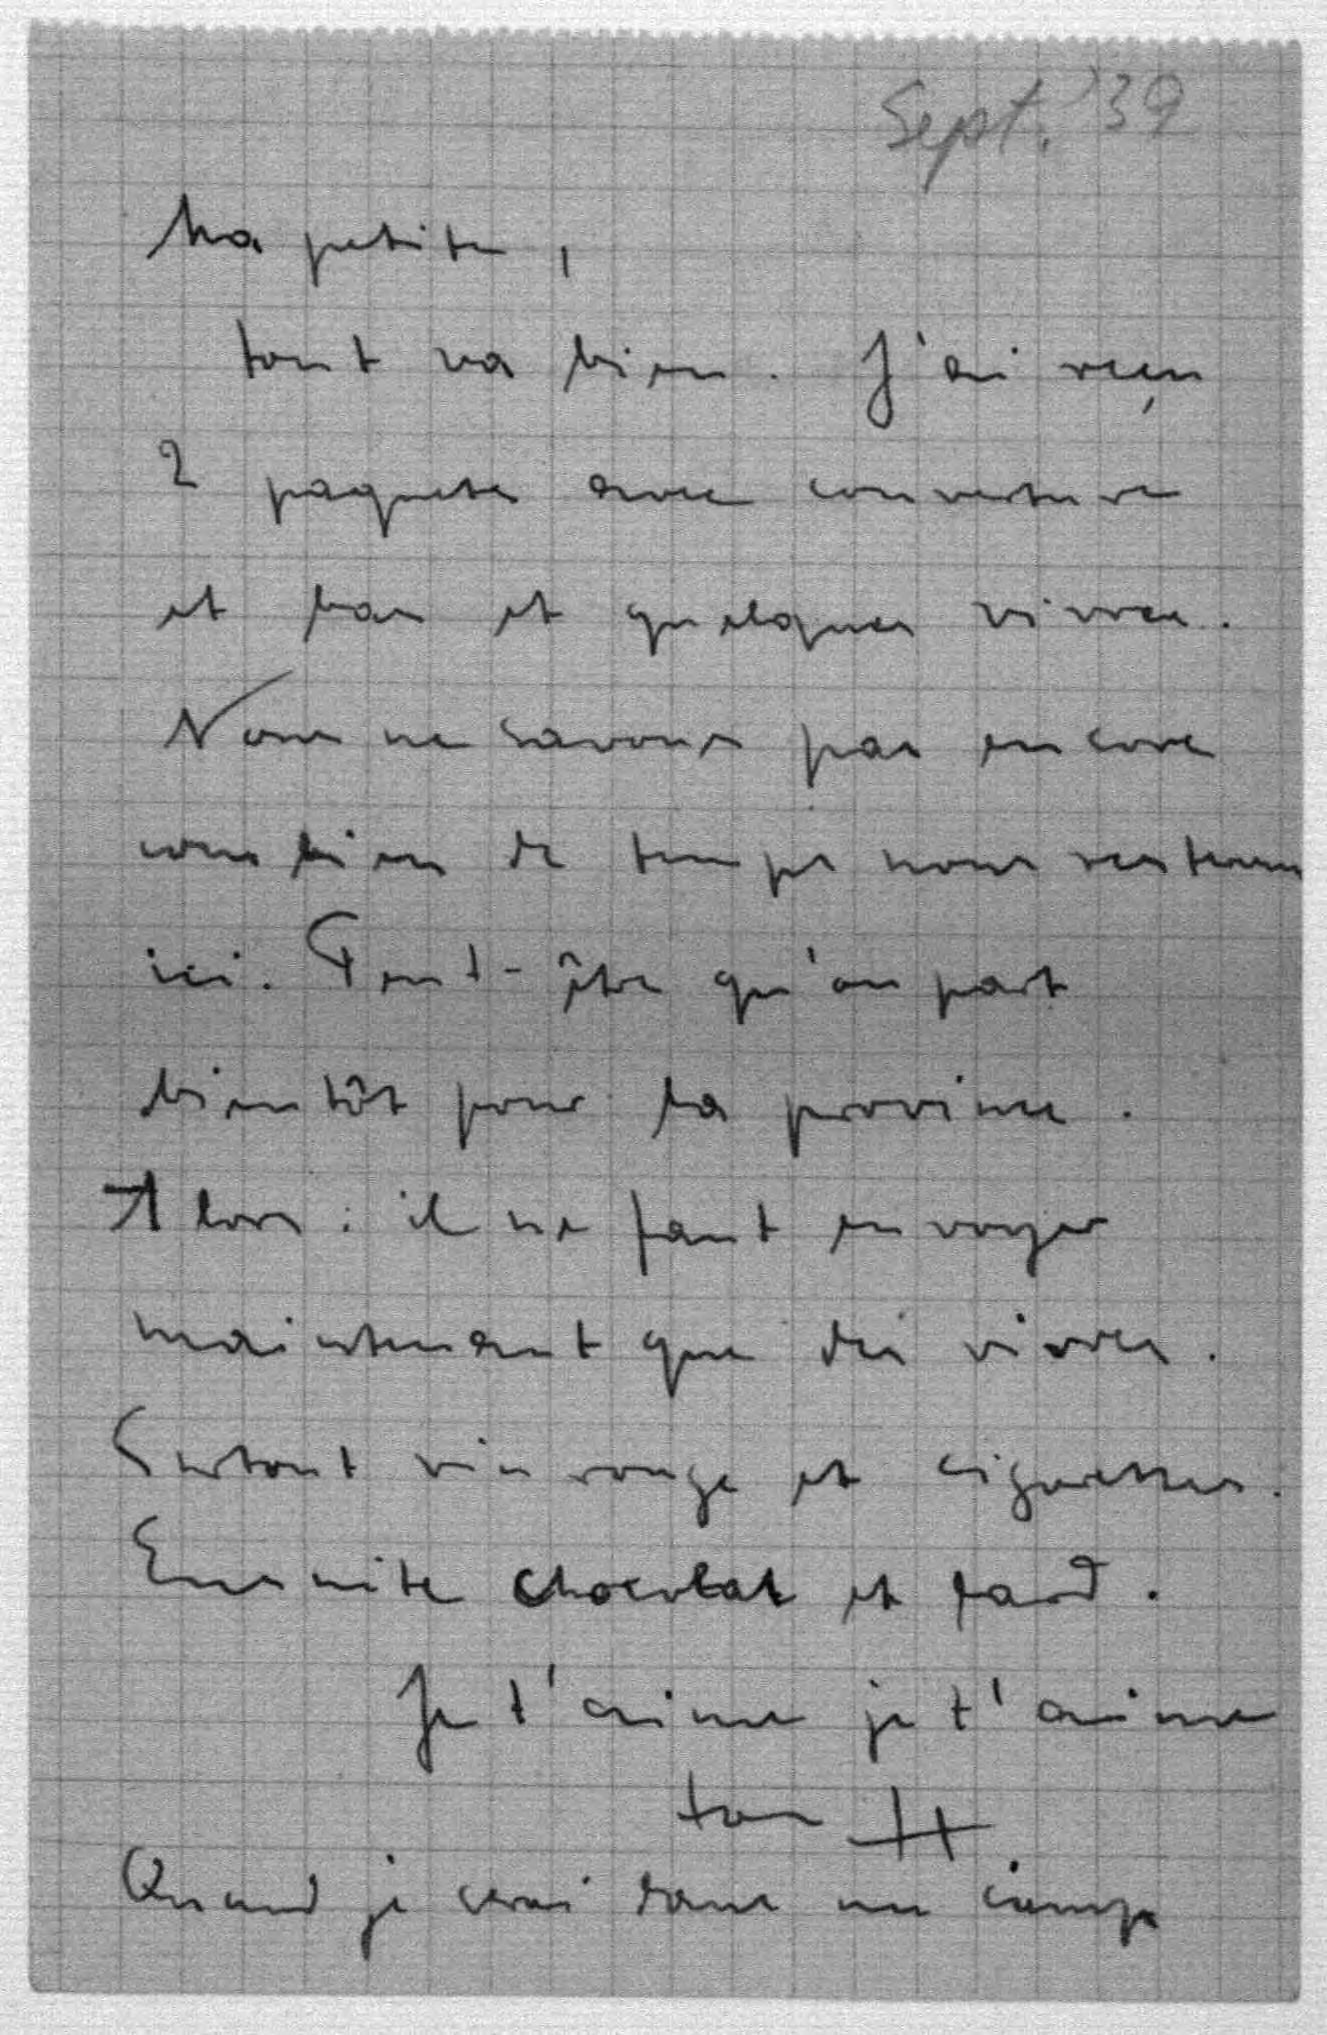 Sept. '39
Ma petite,
tout va bien. J'ai reçu
2 paquets avec couverture
et bas et quelques vivres.
Nous ne savons pas encore
combien de temps nous restons
ici. Peut-être qu'on part
bientôt pour la province.
Alors : il ne faut envoyer
maintenant que des vivres.
Surtout vin rouge et cigarettes.
Ensuite chocolat et lard.
Je t'aime je t'aime
ton H
Quand je serai dans un camp